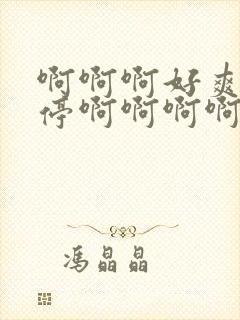 啊啊啊好爽
停啊啊啊啊
冯晶晶